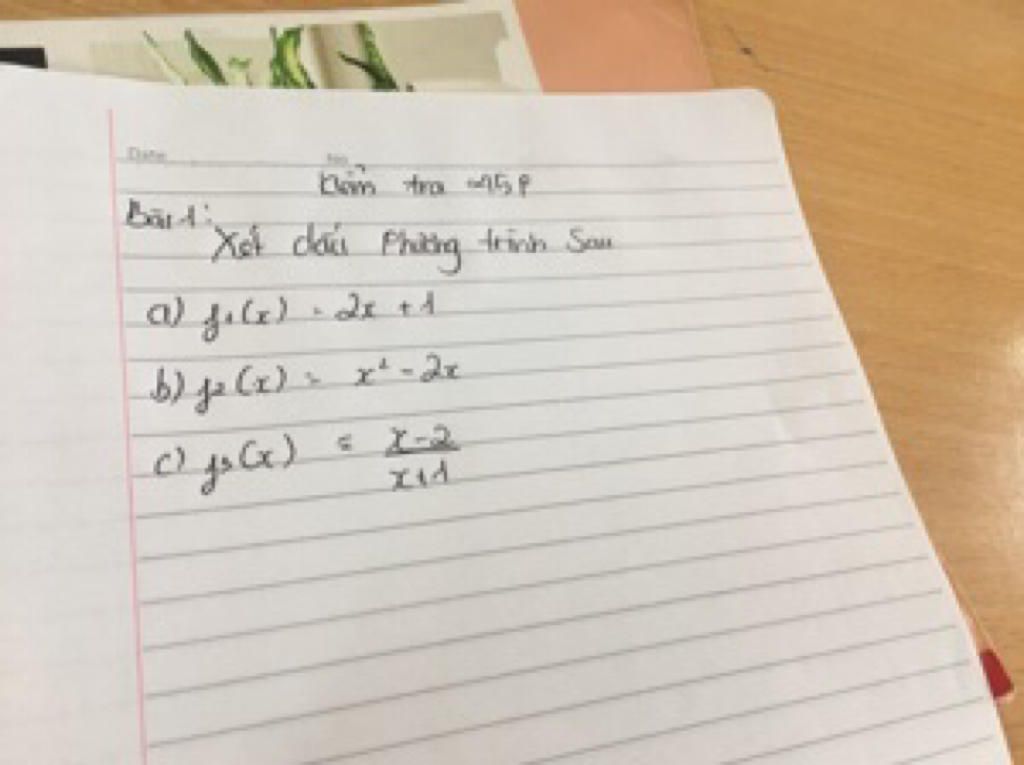 Date No
Kiểm tra 15p
Bài 1:
Xét dấu Phương trình Sau
a) f₁(x) = 2x + 1
b) f₂(x) = x² - 2x
c) f₃(x) = \frac{x-2}{x+1}